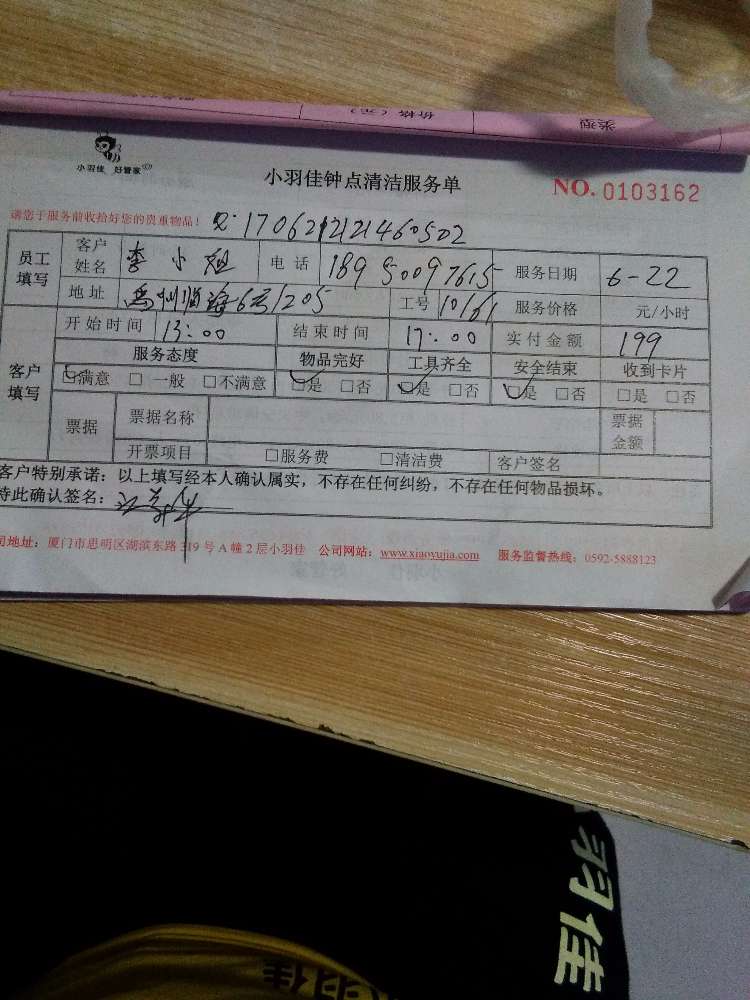 价格（元）
类型
小羽佳 好管家
小羽佳钟点清洁服务单
NO. 0103162
请您于服务前收拾好您的贵重物品！
员工填写 客户姓名 李小姐 电话 18950097615 服务日期 6-22
地址 禹州临海6号1205 工号 10161 服务价格 元/小时
客户填写 开始时间 13:00 结束时间 17:00 实付金额 199
服务态度 物品完好 工具齐全 安全结束 收到卡片
☑满意 □一般 □不满意 ☑是 □否 ☑是 □否 ☑是 □否 □是 □否
票据 票据名称 票据金额
开票项目 □服务费 □清洁费 客户签名
客户特别承诺：以上填写经本人确认属实，不存在任何纠纷，不存在任何物品损坏。
特此确认签名：
司地址：厦门市思明区湖滨东路319号A幢2层小羽佳 公司网站：www.xiaoyujia.com 服务监督热线：0592-5888123
羽佳
羽佳